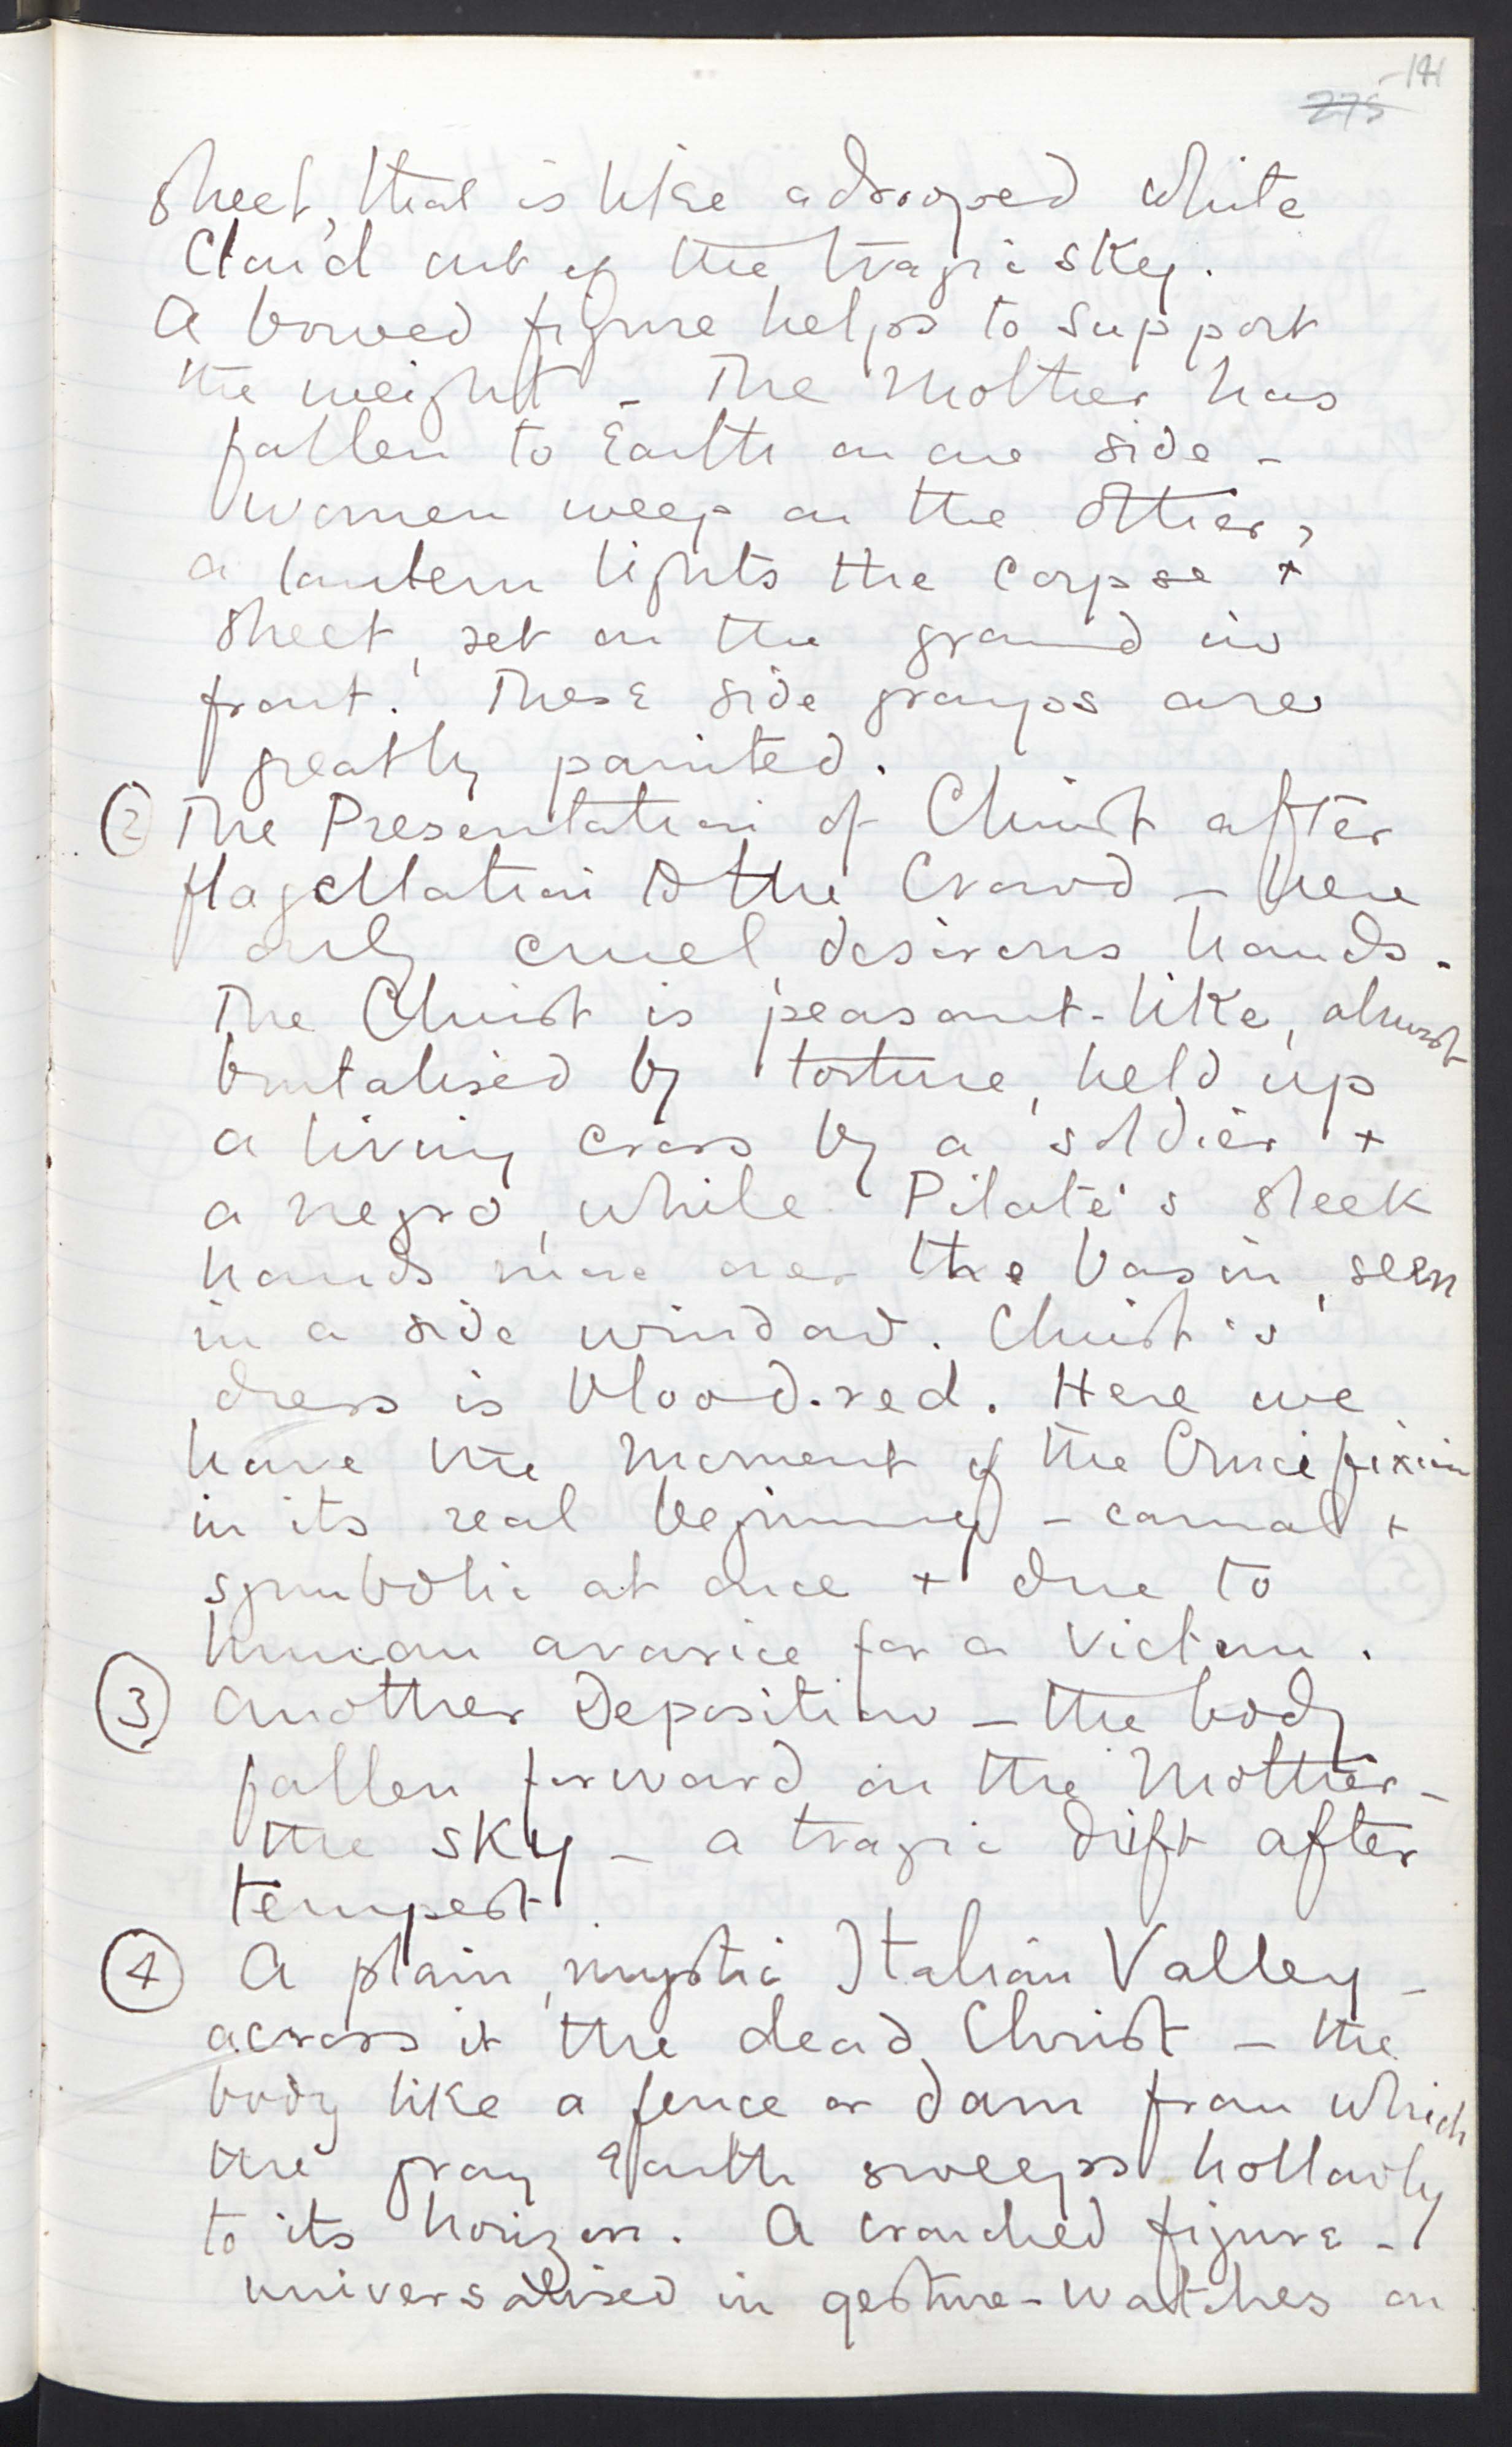 141
275
sheet, that is like a dropped white
Cloud out of the tragic sky.
A bowed figure helps to support
the weight - The Mother has
fallen to Earth on one side -
women weep on the other,
a lantern lights the corpse +
sheet, set on the ground in
front. These side groups are
greatly painted.
(2) The Presentation of Christ after
flagellation to the Crowd - here
only cruel, desirous hands.
The Christ is peasant-like, almost
brutalised by torture, held up
a living cross by a soldier +
a negro, while Pilate's sleek
hands move over the basin, seen
in a side window. Christ's
dress is blood-red. Here we
have the moment of the Crucifixion
in its real beginning - carnal +
symbolic at once + due to
human avarice for a victim.
(3) Another Deposition - the body
fallen forward on the Mother -
the sky - a tragic drift after
tempest
(4) A plain, mystic Italian Valley -
across it the dead Christ - the
body like a fence or dam from which
the gray Earth sweeps hollowly
to its horizon. A crouched figure -
universalised in gesture - watches on